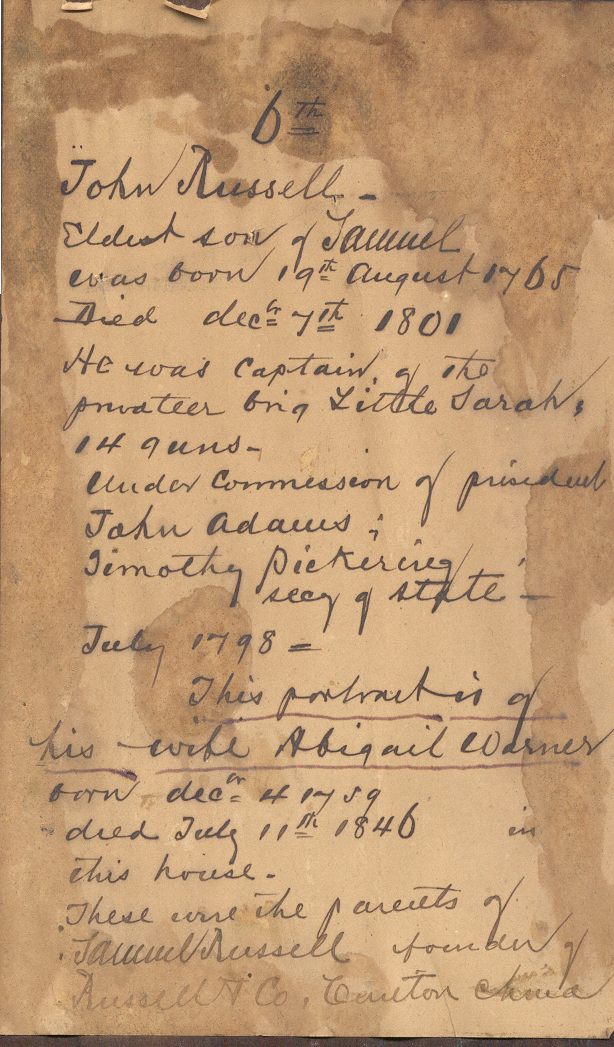 6th
John Russell -
Eldest son of Samuel
was born 19th August 1765
Died decbr 7th 1801
He was Captain of the
privateer brig Little Sarah,
14 guns -
Under Commission of president
John Adams ;
Timothy Pickering
secy of state -
July 1798 =
This portrait is of
his wife Abigail Warner
born decbr 4 1759
died July 11th 1846 in
this house -
These were the parents of
Samuel Russell founder of
Russell & Co. Canton China